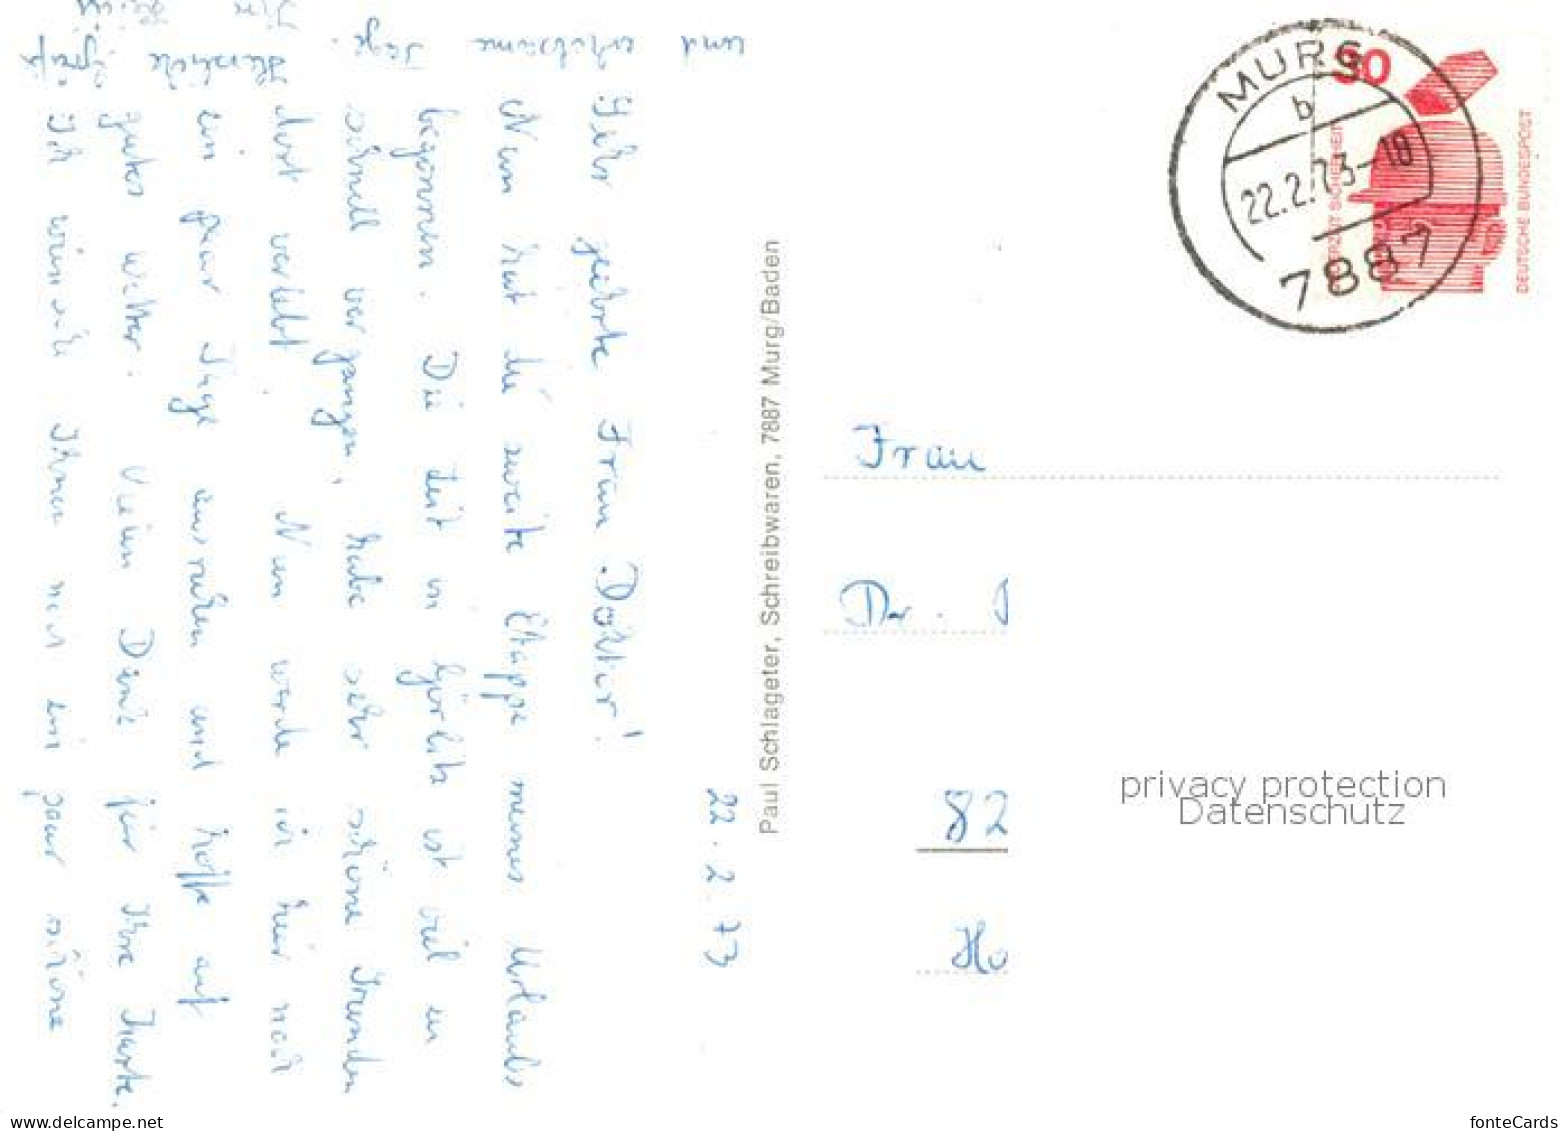 22.2.73
Sehr geehrte Frau Doktor!
Nun hat die zweite Etappe meines Urlaubs
begonnen. Die Zeit in Görlitz ist viel zu
schnell vergangen, habe sehr schöne Stunden
dort verlebt. Nun werde ich hier noch
ein paar Tage ausruhen und hoffe auf
gutes Wetter. Vielen Dank für Ihre Karte.
Ich wünsche Ihnen noch ein paar schöne
und erholsame Tage.
Herzliche Grüße
Paul Schlageter, Schreibwaren, 7887 Murg/Baden
MURG
b
22.2.73-18
7887
DEUTSCHE BUNDESPOST
JEDERZEIT SICHERHEIT
Frau
Dr.
82
Ho
privacy protection
Datenschutz
www.delcampe.net
fonteCards